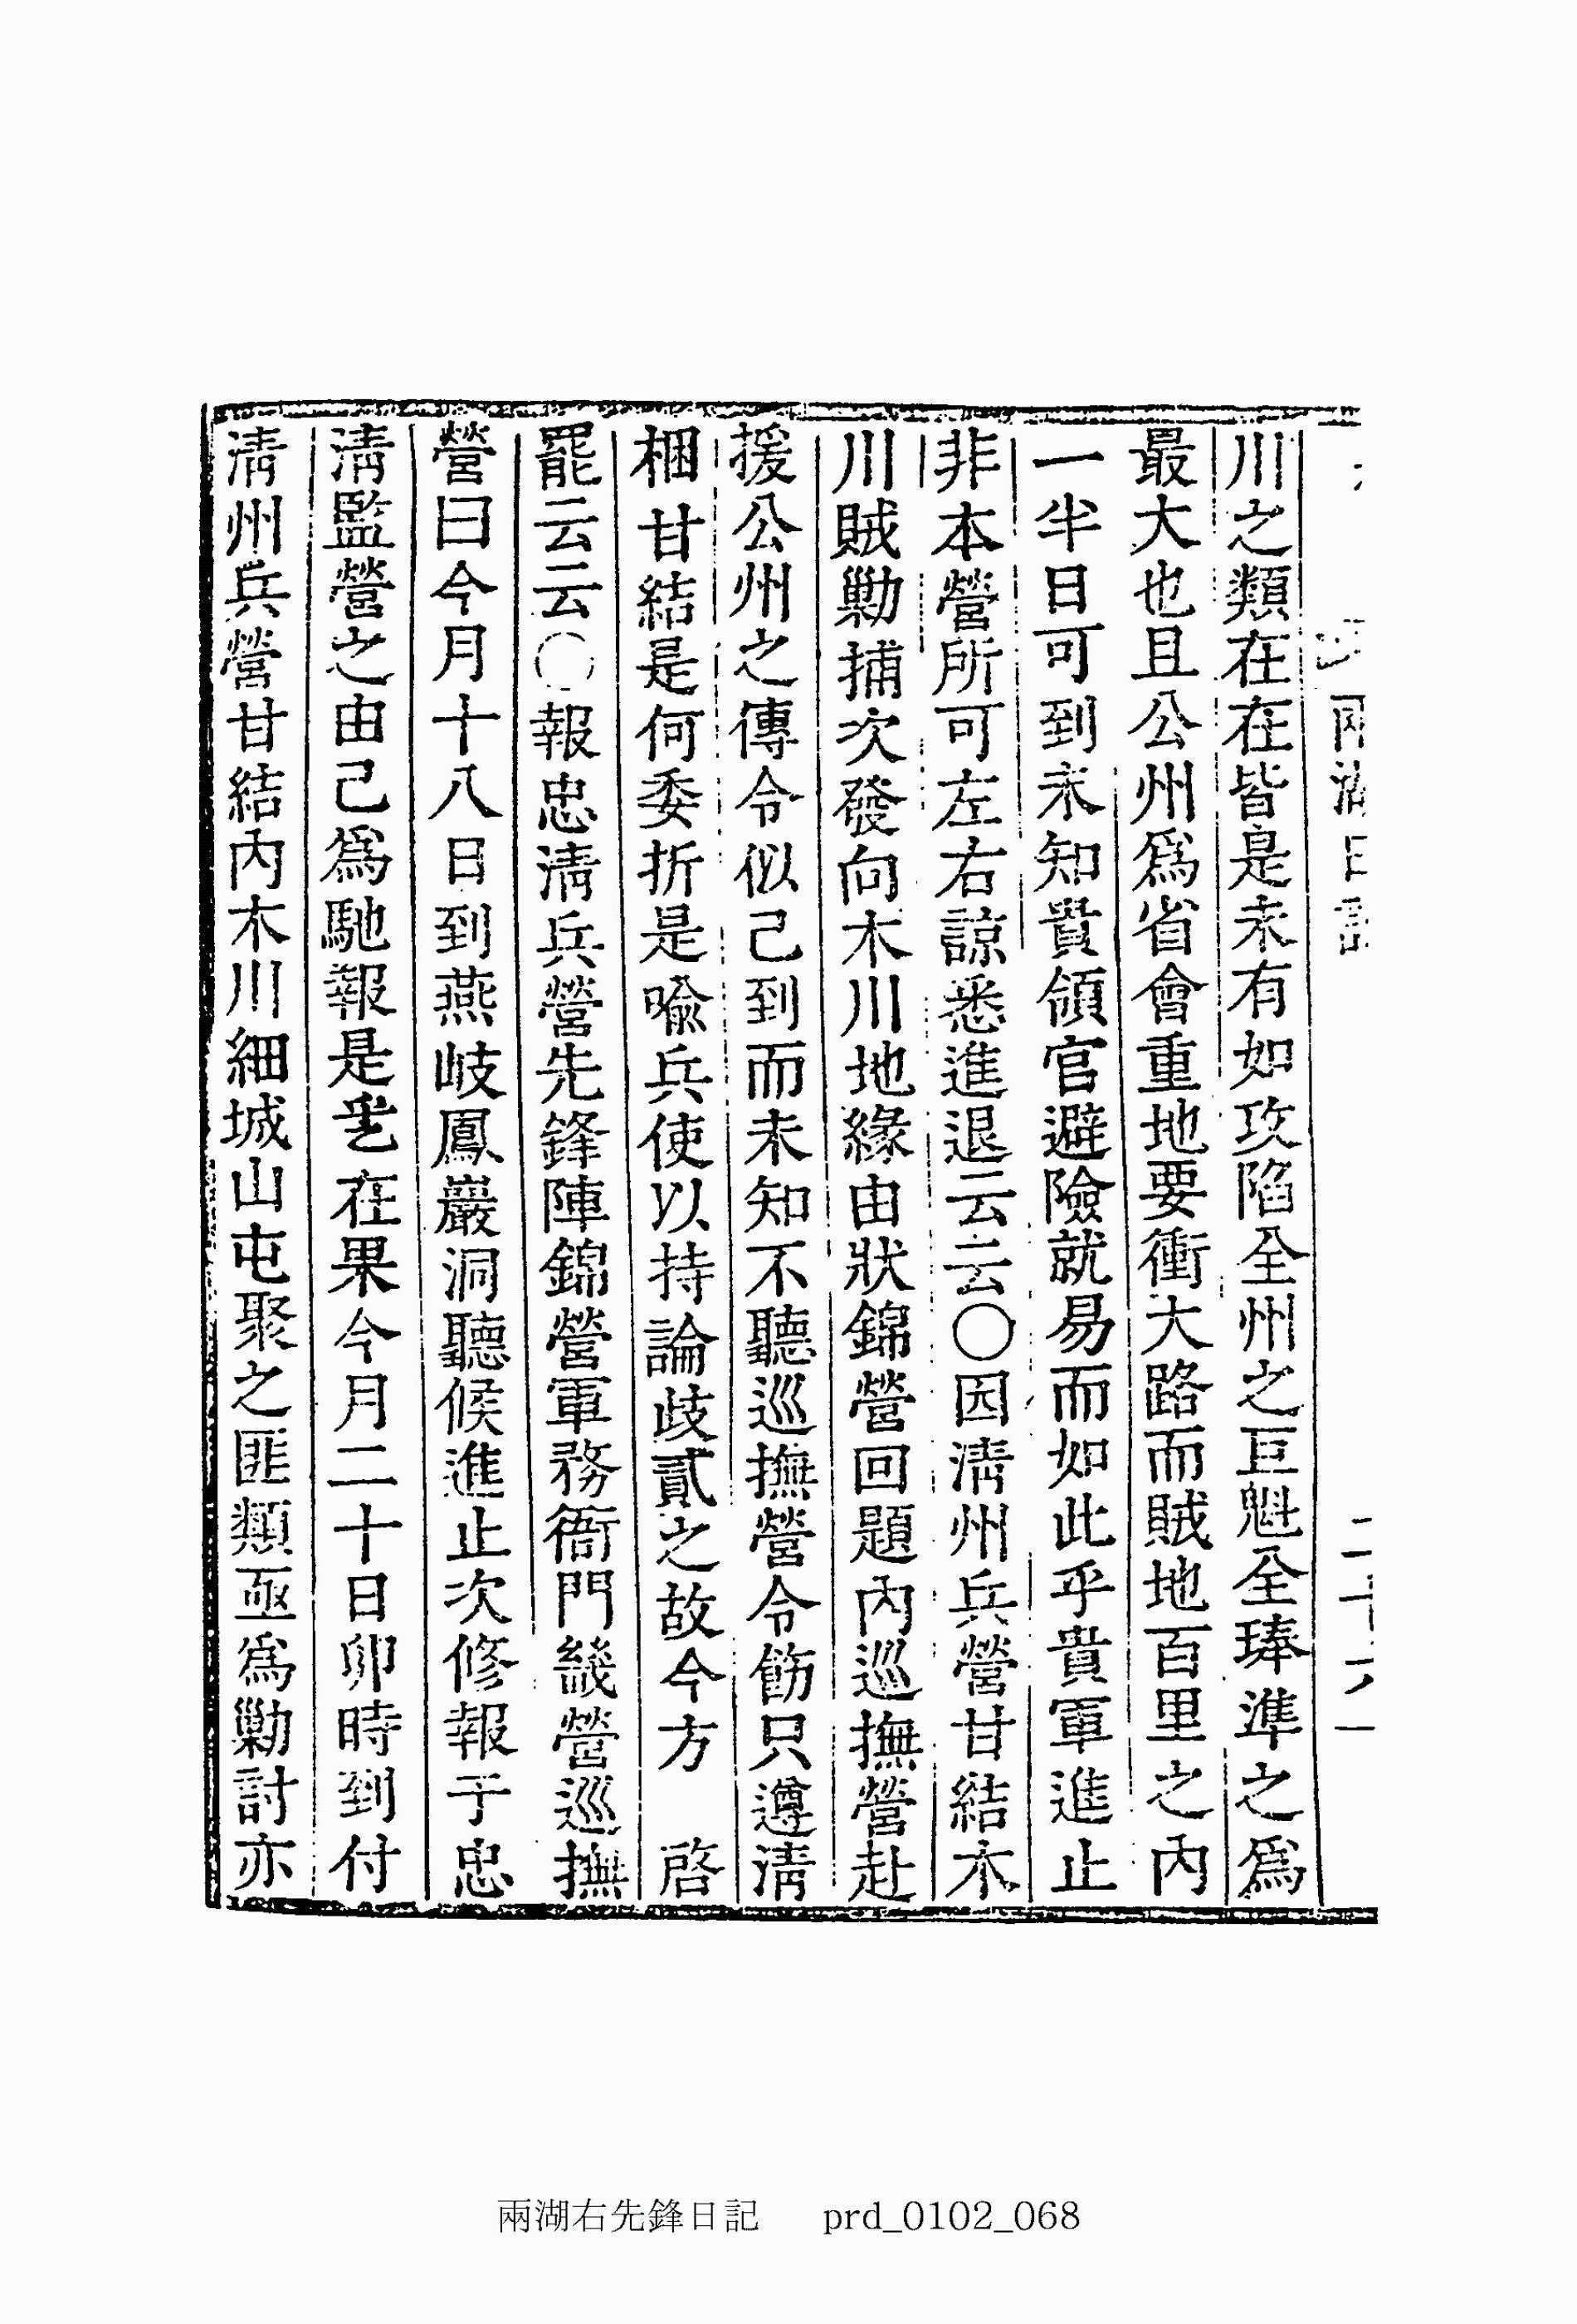 兩湖日記
川之類在在皆是未有如攻陷全州之巨魁全琫準之爲
最大也且公州爲省會重地要衝大路而賊地百里之內
一半日可到未知貴領官避險就易而如此乎貴軍進止
非本營所可左右諒悉進退云云〇因淸州兵營甘結木
川賊勦捕次發向木川地緣由狀錦營回題內巡撫營赴
援公州之傳令似已到而未知不聽巡撫營令飭只遵淸
梱甘結是何委折是喩兵使以持論歧貳之故今方 啓
罷云云〇報忠淸兵營先鋒陣錦營軍務衙門畿營巡撫
營曰今月十八日到燕岐鳳巖洞聽候進止次修報于忠
淸監營之由已爲馳報是乎在果今月二十日卯時到付
淸州兵營甘結內木川細城山屯聚之匪類亟爲勦討亦
兩湖右先鋒日記 prd_0102_068